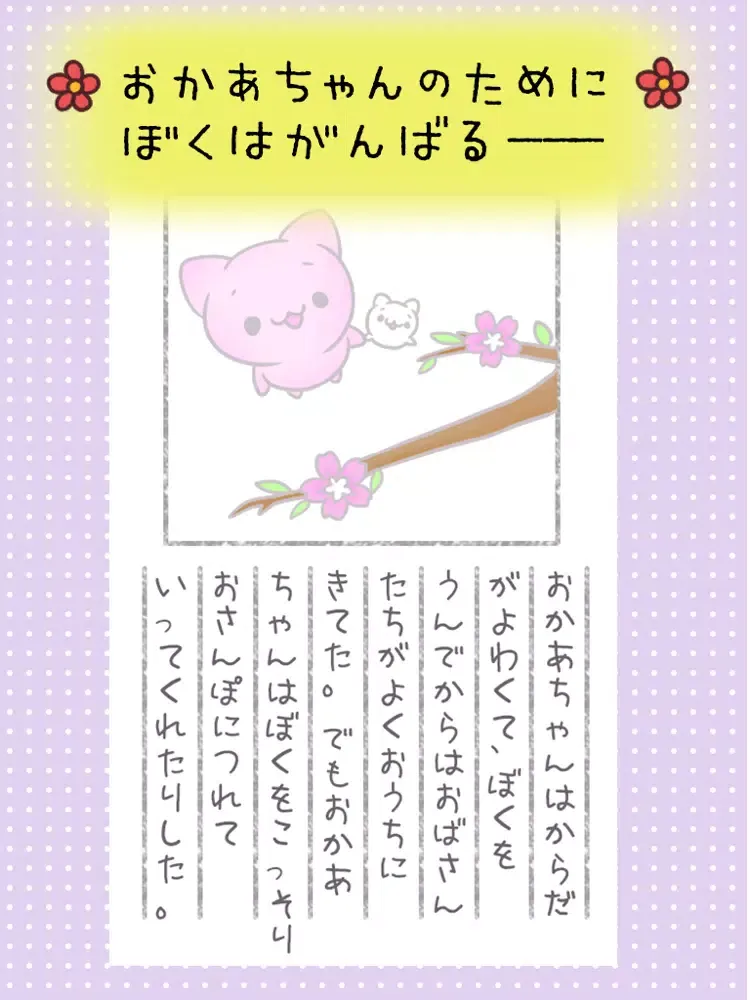 おかあちゃんのために
ぼくはがんばる──
おかあちゃんはからだ
がよわくて、ぼくを
うんでからはおばさん
たちがよくおうちに
きてた。でもおかあ
ちゃんはぼくをこっそり
おさんぽにつれて
いってくれたりした。